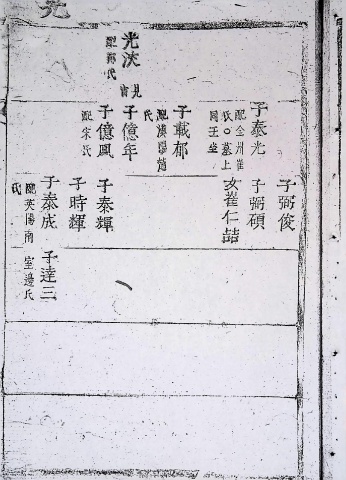 光
光浹
見前
配鄭氏
子泰光
配金州崔
氏〇墓上
同王坐
子載郁
配漢陽趙
氏
子億年
子億鳳
配宋氏
子弼俊
子弼碩
女崔仁喆
子泰輝
子時輝
子泰成
配英陽南
氏
子達三
室邊氏